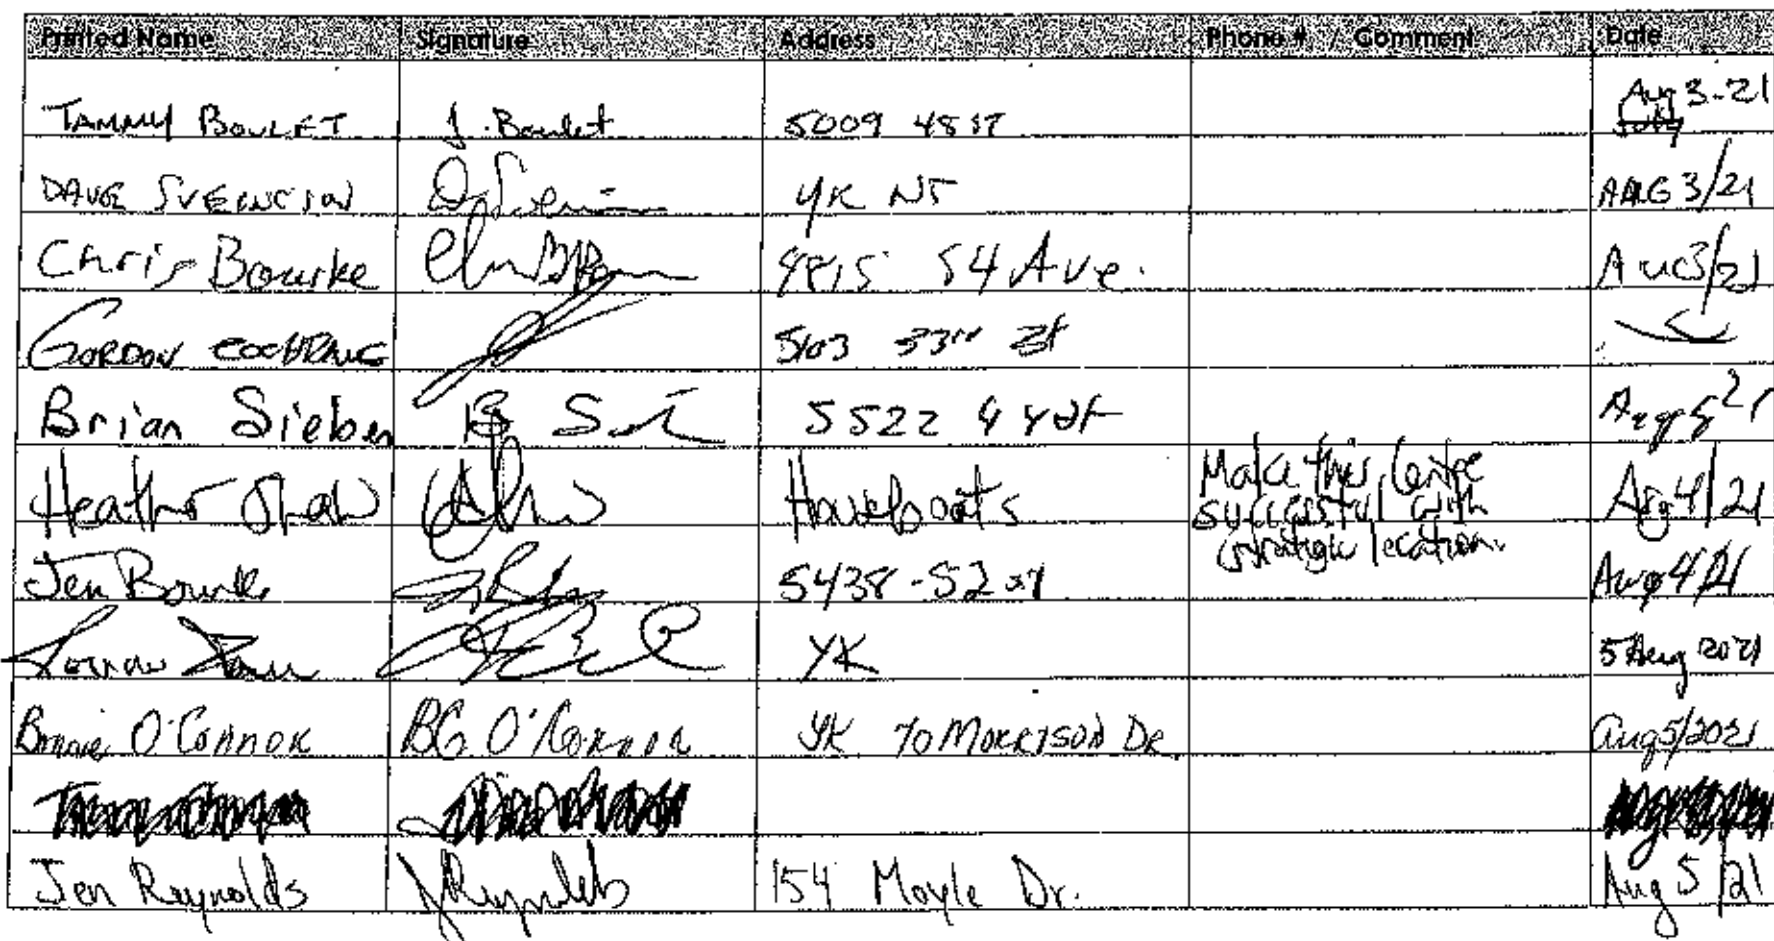 Printed Name Signature Address Phone # / Comment Date
TAMMY BOULET J. Boulet 5009 48 ST Aug 3-21
DAVE SVEINCION YK NT AUG 3/21
Chris Bourke 4815 54 Ave. Aug 3/21
GORDON COCHRANE 5103 53rd St
Brian Sieben B S 5522 44 St Aug 5 21
Heather Shaw Houseboats Make this centre Aug 4/21
successful with
strategic location.
Jen Bourke 5438-52 st Aug 4/21
YK 5 Aug 2021
Bonnie O'Connor BG O'Connor YK 70 MORRISON DR Aug 5/2021
Jen Reynolds JReynolds 154 Moyle Dr. Aug 5/21